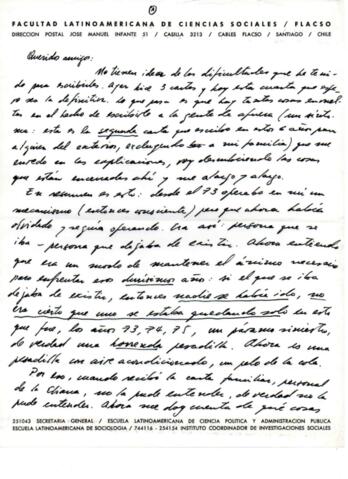 (1)
FACULTAD LATINOAMERICANA DE CIENCIAS SOCIALES / FLACSO
DIRECCION POSTAL JOSE MANUEL INFANTE 51 / CASILLA 3213 / CABLES FLACSO / SANTIAGO / CHILE
Querido amigo:
No tienen idea de las dificultades que he teni-
do para escribirles. Ayer hice 3 cartas y hoy esta cuarta que espe-
ro sea la definitiva. Lo que pasa es que hay tantas cosas envuel-
tas en el hecho de escribirle a la gente de afuera (un sínto-
ma: esta es la segunda carta que escribo en estos 6 años para
alguien del exterior, excluyendo a mi familia) que me
enredo en las explicaciones, voy descubriendo las cosas
que están encerradas ahí y me alargo y alargo.
En resumen es esto: desde el 73 operaba en mí un
mecanismo (entonces consciente) pero que ahora había
olvidado y seguía operando. Era así: persona que se
iba - persona que dejaba de existir. Ahora entiendo
que era un modo de mantener el ánimo necesario
para enfrentar esos durísimos años: si el que se iba
dejaba de existir, entonces nadie se había ido, no
era cierto que uno se estaba quedando solo en esto
que fue, los años 73, 74, 75, un páramo siniestro,
de verdad una horrenda pesadilla. Ahora es una
pesadilla con aire acondicionado, un pelo de la cola.
Por eso, cuando recibí la carta familiar, personal
de la Eliana, no la pude entender, de verdad no la
pude entender. Ahora me doy cuenta de qué cosas
251043 SECRETARIA GENERAL / ESCUELA LATINOAMERICANA DE CIENCIA POLITICA Y ADMINISTRACION PUBLICA
ESCUELA LATINOAMERICANA DE SOCIOLOGIA / 744116 - 254154 INSTITUTO COORDINADOR DE INVESTIGACIONES SOCIALES